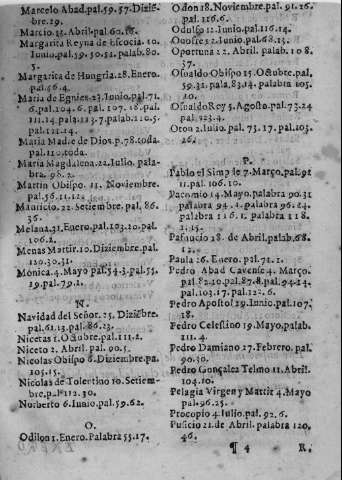 Marcelo Abad.pal.59.57.Dizié-
bre.29.
Marcio.23.Abril.pal.60.16.
Margarita Reyna de Escocia.10.
Iunio.pal.59.50.51.palab.80.
3.
Margarita de Hungria.28.Enero.
pal.56.4.
Maria de Egnies.23.Iunio.pal.71.
6.pal.104.6.pal.107.18.pal.
111.14.pala.113.7.palab.110.5.
pal.121.14.
Maria Madre de Dios.p.78.toda.
pal.110.toda.
Maria Magdalena.22.Iulio.pala-
bra.98.2.
Martin Obispo.11.Noviembre.
pal.56.11.12.
Mauricio.22.Setiembre.pal.86.
36.
Melana.31.Enero.pal.103.20.pal.
106.2.
Menas Martir.10.Diziembre.pal.
120.30.31.
Monica.4.Mayo pal.54.3.pal.55.
19.pal.79.2.
N.
Navidad del Señor.25.Diziébre
pal.61.13.pal.86.23.
Nicetas 1.Octubre.pal.111.2.
Niceto 2.Abril.pal.90.5.
Nicolas Obispo 6.Diziembre.pa.
105.15.
Nicolas de Tolentino 10.Setiem-
bre.pal.112.30.
Norberto 6.Iunio.pal.59.62.
O.
Odilon 1.Enero.Palabra 55.17.
Odon 18.Noviembre.pal.91.26.
pal.116.6.
Odulfo 12.Iunio.pal.116.14.
Onofre 12.Iunio.pal.68.13.
Oportuna 22.Abril.palab.108.
37.
Osualdo Obispo 15.Octubre.pal.
59.32.pala.83.14.palabra 105.
10.
Osualdo Rey 5.Agosto.pal.73.24
pal.123.4.
Oton 2.Iulio.pal.73.17.pal.103.
26.
P.
Pablo el Simple 7.Março.pal.92
11.pal.106.10.
Pacomio 14.Mayo.palabra 90.31
palabra 94.4.palabra 96.24.
palabra 116.1.palabra 118.
2.15.
Pafnucio 18.de Abril.palab.68.
12.
Paula 26.Enero.pal.72.1.
Pedro Abad Cavense 4.Março.
pal.82.20.pal.87.8.pal.94.24.
pal.103.17.pal.122.6.
Pedro Apostol 29.Iunio.pal.107.
18.
Pedro Celestino 19.Mayo.palab.
111.4.
Pedro Damiano 27.Febrero.pal.
90.30.
Pedro Gonçalez Telmo 11.Abril.
104.10.
Pelagia Virgen y Martir 4.Mayo
pal.96.25.
Procopio 4.Iulio.pal.92.6.
Pusicio 21.de Abril.palabra 120.
46.
¶ 4 R.